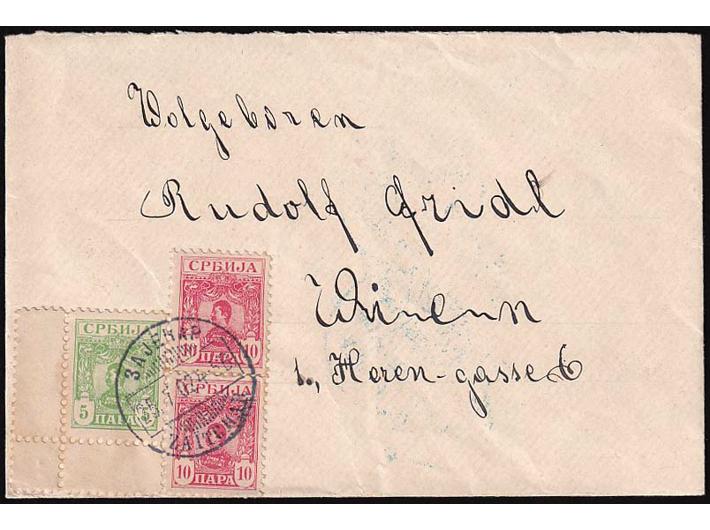 Wolgeboren
Rudolf Fridl
Wineun
1., Heren-gasse 6
СРБИЈА
10 ПАРА 10
СРБИЈА
5 ПАРА
10 ПАРА 10
ЗАЈЕЧАР
ZAITCHAR